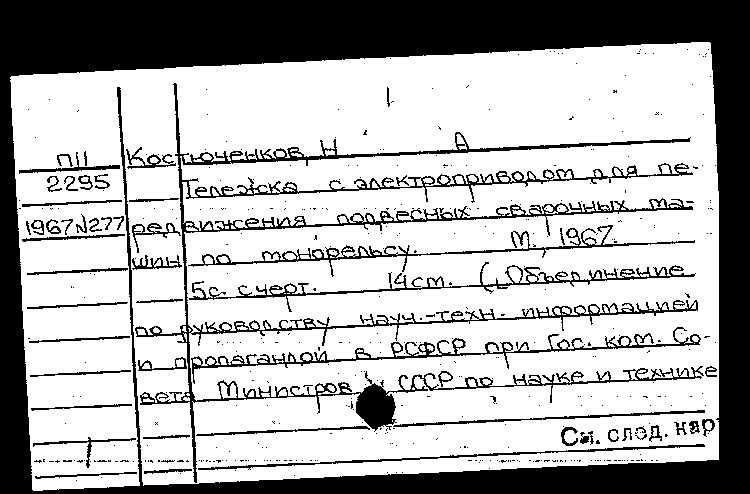 П11 Костюченков, Н А
2295 Тележка с электроприводом для пе-
1967№277 редвижения подвесных сварочных ма-
шин по монорельсу. М., 1967.
5с. с черт. 14см. (Объединение
по руководству науч.-техн. информацией
и пропагандой в РСФСР при Гос. ком. Со-
вета Министров СССР по науке и технике
См. след. кар